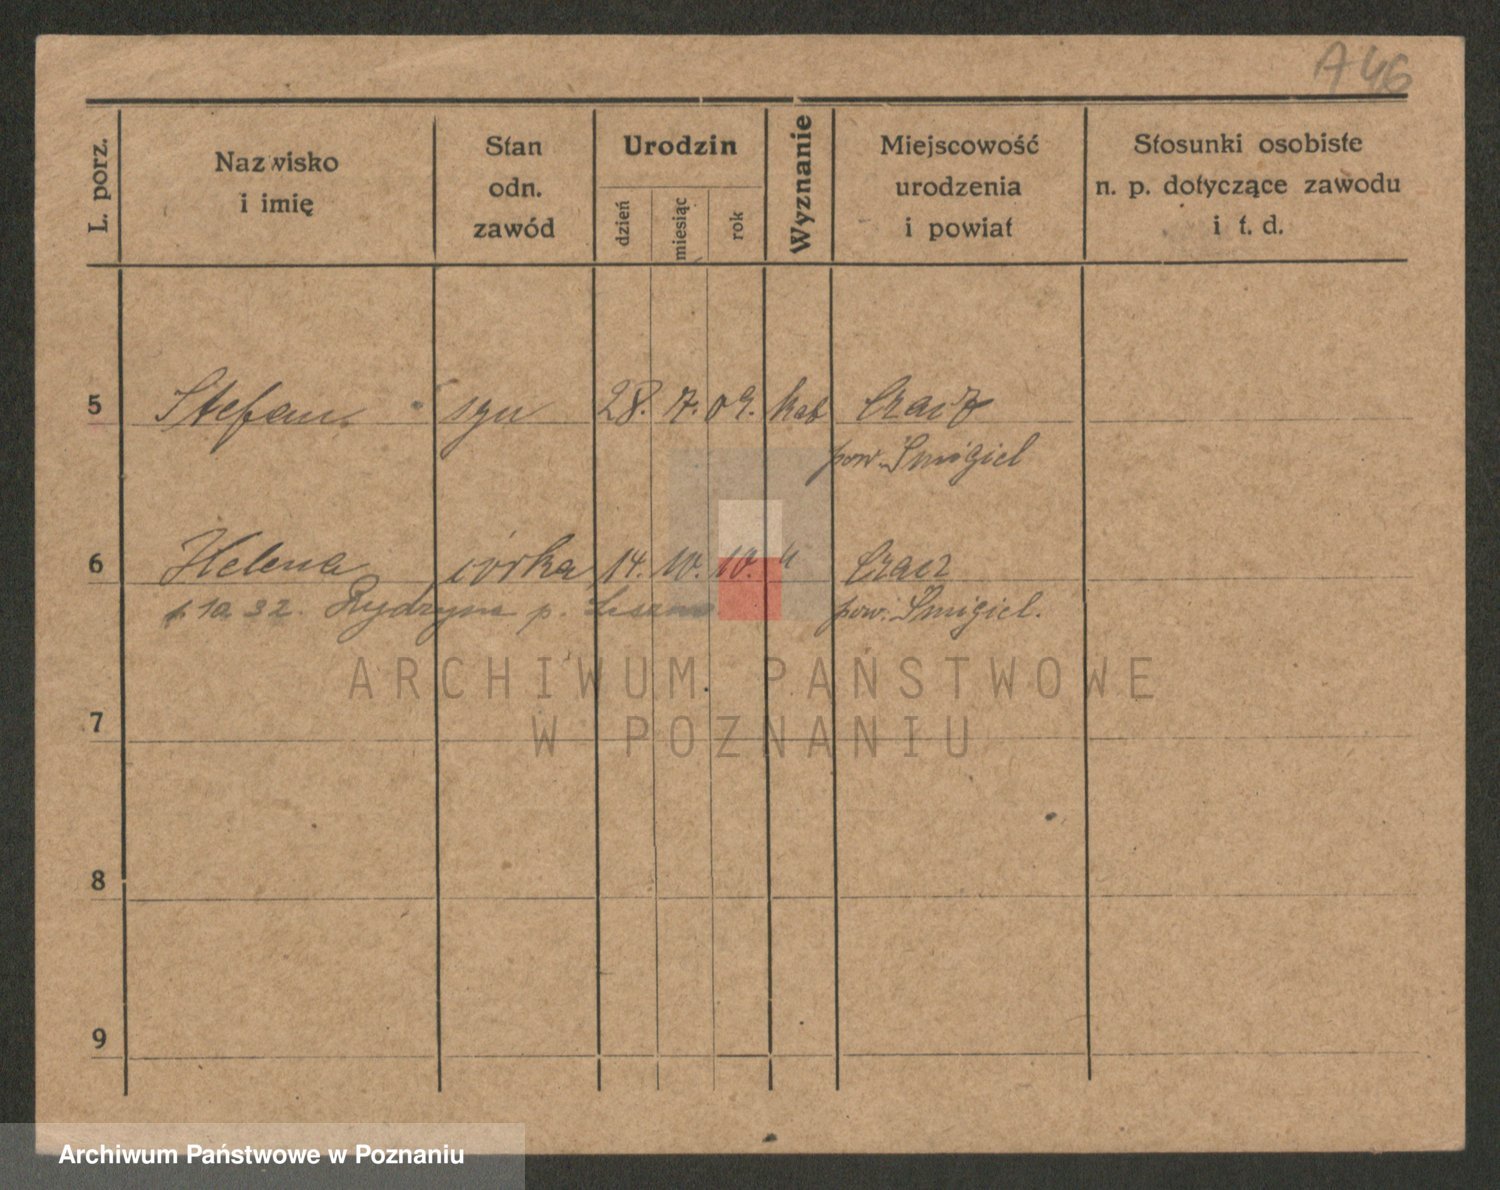 A 46
L. porz.
Nazwisko
i imię
Stan
odn.
zawód
Urodzin
dzień
miesiąc
rok
Wyznanie
Miejscowość
urodzenia
i powiat
Stosunki osobiste
n. p. dotyczące zawodu
i t. d.
5 Stefan syn 28. 7. 09. kat Czacz
pow. Śmigiel
6 Helena córka 14. 10. 10. " Czacz
10. 32. Rydzyna p. Leszno pow. Śmigiel.
7
8
9
ARCHIWUM PAŃSTWOWE
W POZNANIU
Archiwum Państwowe w Poznaniu